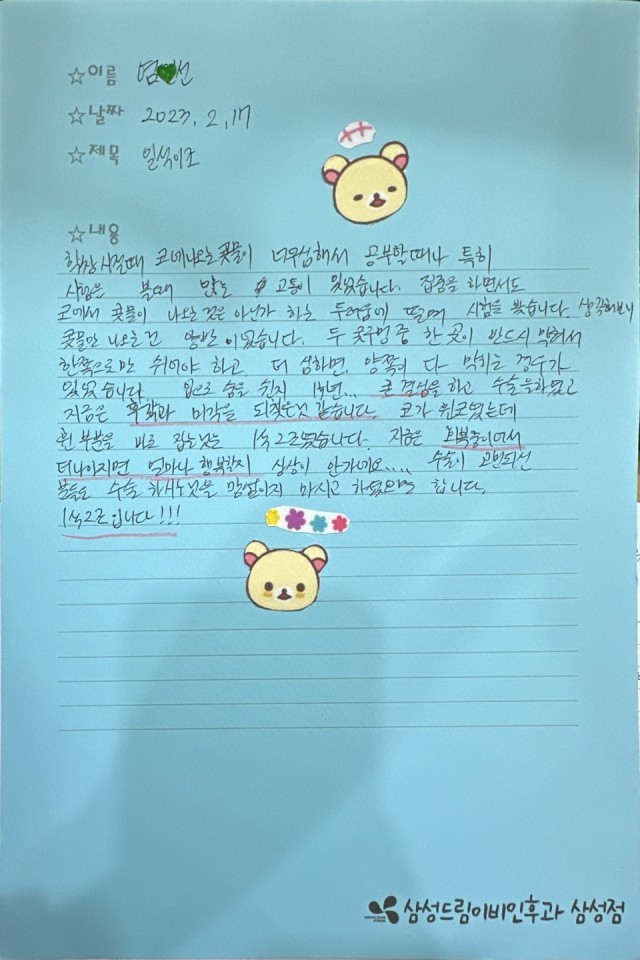 ☆이름 염 선
☆날짜 2023. 2. 17
☆제목 일석이조
☆내용
학창시절때 코에나오는 콧물이 너무심해서 공부할때나 특히
시험은 볼때 많은 고통이 있었습니다. 집중을 하면서도
코에서 콧물이 나오는 것은 아닌가 하는 두려움에 떨며 시험을 봤습니다. 생각해보니
콧물만 나오는건 양반이었습니다. 두 콧구멍 중 한 곳이 반드시 막혀서
한쪽으로만 쉬어야 하고 더 심하면 양쪽이 다 막히는 경우가
있었습니다. 입으로 숨을 쉰지 년... 큰 결심을 하고 수술을하였고
지금은 후각과 미각을 되찾은것 같습니다. 코가 휜코였는데
휜 부분을 바로 잡는것은 1석2조였습니다. 지금은 회복중이어서
더나아지면 얼마나 행복할지 상상이 안가네요.... 수술이 고민되신
분들은 수술 하시는것을 망설이지 마시고 하셨으면 합니다.
1석2조입니다!!!
삼성드림이비인후과 삼성점